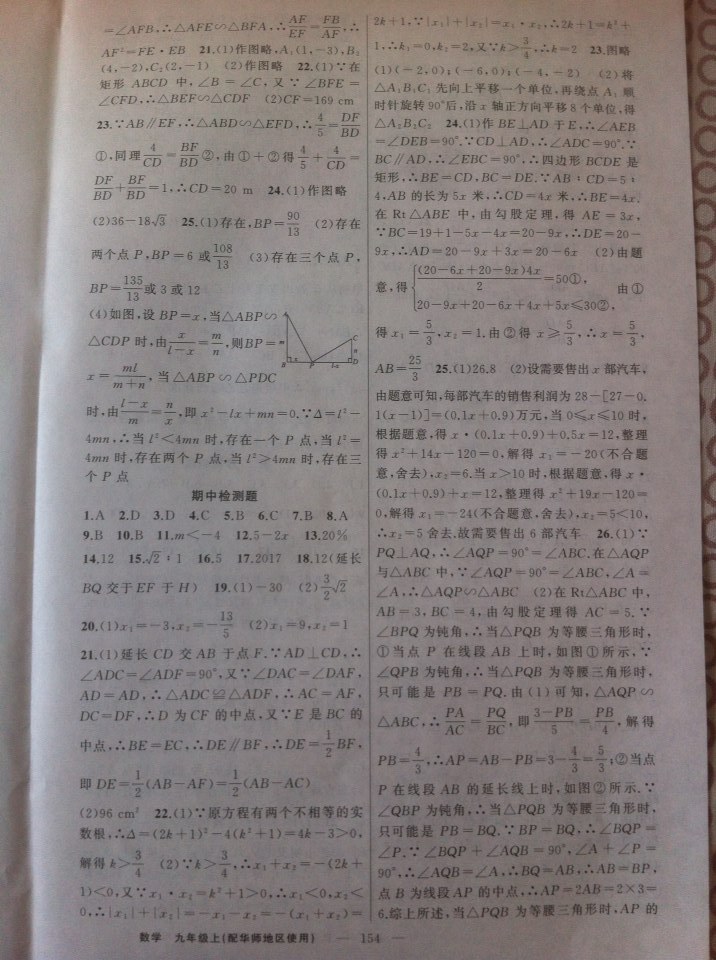 =∠AFB,∴△AFE∽△BFA,∴AF/EF=FB/AF,∴
AF²=FE·EB 21.(1)作图略,A₁(1,-3),B₂
(4,-2),C₂(2,-1) (2)作图略 22.(1)∵在
矩形 ABCD 中,∠B=∠C,又∵∠BFE=
∠CFD,∴△BEF∽△CDF (2)CF=169 cm
23.∵AB∥EF,∴△ABD∽△EFD,∴4/5=DF/BD
①,同理4/CD=BF/BD②,由①+②得4/5+4/CD=
DF/BD+BF/BD=1,∴CD=20 m 24.(1)作图略
(2)36-18√3 25.(1)存在,BP=90/13 (2)存在
两个点 P,BP=6 或108/13 (3)存在三个点 P,
BP=135/13或 3 或 12
(4)如图,设 BP=x,当△ABP∽
△CDP 时,由x/(l-x)=m/n,则BP=
x=ml/(m+n),当△ABP∽△PDC
时,由(l-x)/m=n/x,即 x²-lx+mn=0.∵Δ=l²-
4mn,∴当 l²<4mn 时,存在一个 P 点,当 l²=
4mn 时,存在两个 P 点,当 l²>4mn 时,存在三
个 P 点
期中检测题
1.A 2.D 3.D 4.C 5.B 6.C 7.B 8.A
9.B 10.B 11.m<-4 12.5-2x 13.20%
14.12 15.√2∶1 16.5 17.2017 18.12(延长
BQ 交于 EF 于 H) 19.(1)-30 (2)3/2√2
20.(1)x₁=-3,x₂=-13/5 (2)x₁=9,x₂=1
21.(1)延长 CD 交 AB 于点 F.∵AD⊥CD,∴
∠ADC=∠ADF=90°,又∵∠DAC=∠DAF,
AD=AD,∴△ADC≌△ADF,∴AC=AF,
DC=DF,∴D 为 CF 的中点,又∵E 是 BC 的
中点,∴BE=EC,∴DE∥BF,∴DE=1/2BF,
即 DE=1/2(AB-AF)=1/2(AB-AC)
(2)96 cm² 22.(1)∵原方程有两个不相等的实
数根,∴Δ=(2k+1)²-4(k²+1)=4k-3>0,
解得 k>3/4 (2)∵k>3/4,∴x₁+x₂=-(2k+
1)<0,又∵x₁·x₂=k²+1>0,∴x₁<0,x₂<
0,∴|x₁|+|x₂|=-x₁-x₂=-(x₁+x₂)=
2k+1,∵|x₁|+|x₂|=x₁·x₂,∴2k+1=k²+
1,∴k₁=0,k₂=2,又∵k>3/4,∴k=2 23.图略
(1)(-2,0);(-6,0);(-4,-2) (2)将
△A₁B₁C₁ 先向上平移一个单位,再绕点 A₁ 顺
时针旋转 90°后,沿 x 轴正方向平移 8 个单位,得
△A₂B₂C₂ 24.(1)作 BE⊥AD 于 E,∴∠AEB
=∠DEB=90°.∵CD⊥AD,∴∠ADC=90°.∵
BC∥AD,∴∠EBC=90°,∴四边形 BCDE 是
矩形,∴BE=CD,BC=DE.∵AB∶CD=5∶
4,AB 的长为 5x 米,∴CD=4x 米,∴BE=4x.
在 Rt△ABE 中,由勾股定理,得 AE=3x,
∵BC=19+1-5x-4x=20-9x,∴DE=20-
9x,∴AD=20-9x+3x=20-6x (2)由题
意,得{(20-6x+20-9x)4x/2=50①, 由①
20-9x+20-6x+4x+5x≤30②,
得 x₁=5/3,x₂=1.由②得 x≥5/3,∴x=5/3,
AB=25/3 25.(1)26.8 (2)设需要售出 x 部汽车,
由题意可知,每部汽车的销售利润为 28-[27-0.
1(x-1)]=(0.1x+0.9)万元,当 0≤x≤10 时,
根据题意,得 x·(0.1x+0.9)+0.5x=12,整理
得 x²+14x-120=0,解得 x₁=-20(不合题
意,舍去),x₂=6.当 x>10 时,根据题意,得 x·
(0.1x+0.9)+x=12,整理得 x²+19x-120=
0,解得 x₁=-24(不合题意,舍去),x₂=5<10,
∴x₂=5 舍去.故需要售出 6 部汽车 26.(1)∵
PQ⊥AQ,∴∠AQP=90°=∠ABC.在△AQP
与△ABC 中,∵∠AQP=90°=∠ABC,∠A=
∠A,∴△AQP∽△ABC (2)在 Rt△ABC 中,
AB=3,BC=4,由勾股定理得 AC=5.∵
∠BPQ 为钝角,∴当△PQB 为等腰三角形时,
①当点 P 在线段 AB 上时,如图①所示,∵
∠QPB 为钝角,∴当△PQB 为等腰三角形时,
只可能是 PB=PQ.由(1)可知,△AQP∽
△ABC,∴PA/AC=PQ/BC,即(3-PB)/5=PB/4,解得
PB=4/3,∴AP=AB-PB=3-4/3=5/3;②当点
P 在线段 AB 的延长线上时,如图②所示.∵
∠QBP 为钝角,∴当△PQB 为等腰三角形时,
只可能是 PB=BQ.∵BP=BQ,∴∠BQP=
∠P.∵∠BQP+∠AQB=90°,∠A+∠P=
90°,∴∠AQB=∠A,∴BQ=AB,∴AB=BP,
点 B 为线段 AP 的中点,∴AP=2AB=2×3=
6.综上所述,当△PQB 为等腰三角形时,AP 的
数学 九年级上(配华师地区使用) — 154 —